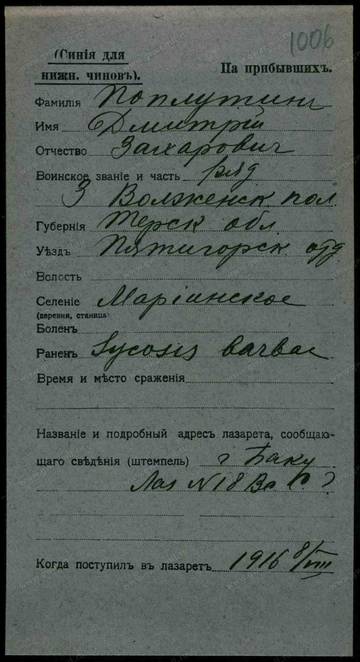 1006
(Синія для
нижн. чиновъ).
На прибывшихъ.
Фамилія Поплутинъ
Имя Дмитрій
Отчество Захарович
Воинское званіе и часть ряд
3 Волженск пол
Губернія Терск обл
Уѣздъ Пятигорск отд
Волость
Селеніе Маріанское
(деревня, станица)
Боленъ
Раненъ Sycosis barbae
Время и мѣсто сраженія
Названіе и подробный адресъ лазарета, сообщаю-
щаго свѣдѣнія (штемпель) г Баку
Лаз N 18
Когда поступилъ въ лазаретъ 1916 8/VIII